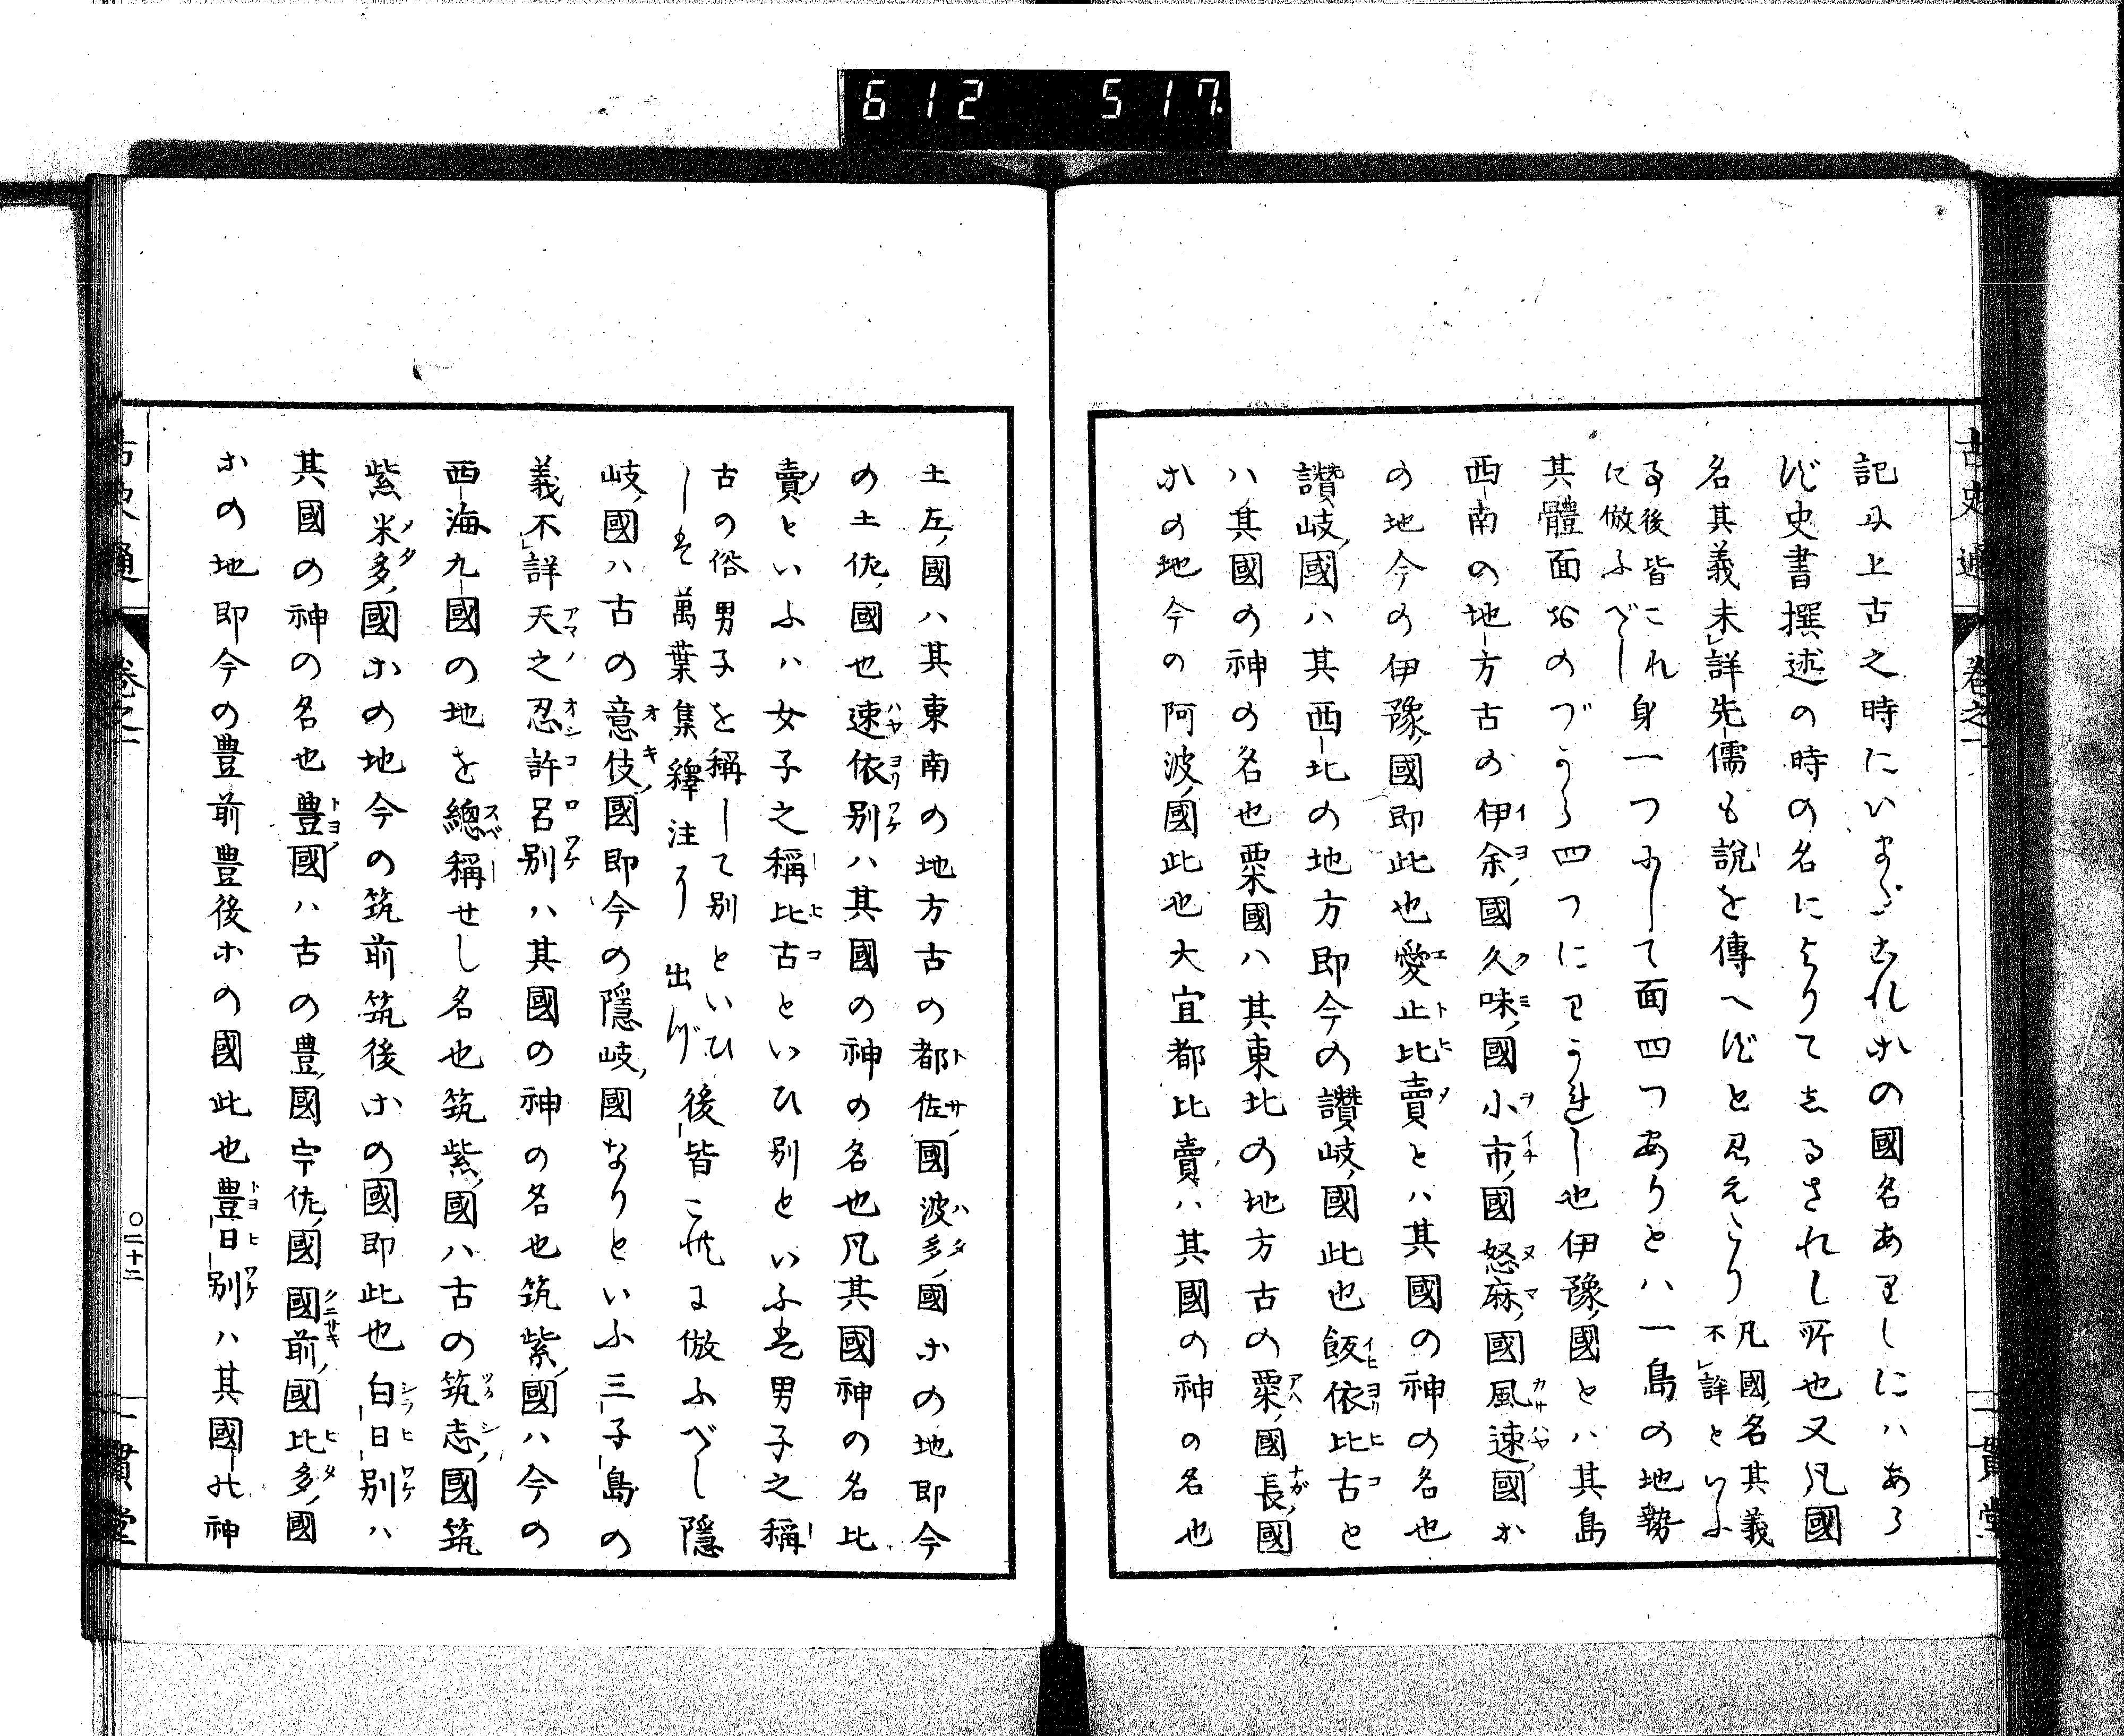 612 517.
古史通 卷之一 一貫堂
記に上古之時にいまだこれ木の國名ありしにハあら
ず史書撰述の時の名によりてしるされし所也又凡國
名其義未詳先儒も說を傳へずと見えたり凡國名其義不詳といふ
事後皆これに倣ふべし身一つにして面四つありとハ一島の地勢
其體面おのづから四つにわかれし也伊豫國とハ其島
西南の地方古の伊余國久味國小市國怒麻國風速國ホ
の地今の伊豫國即此也愛止比賣とハ其國の神の名也
讃岐國ハ其西北の地方即今の讃岐國此也飯依比古と
ハ其國の神の名也粟國ハ其東北の地方古の粟國長國
ホの地今の阿波國此也大宜都比賣ハ其國の神の名也
土左國ハ其東南の地方古の都佐國波多國ホの地即今
の土佐國也速依別ハ其國の神の名也凡其國神の名比
賣といふハ女子之稱比古といひ別といふは男子之稱
古の俗男子を稱して別といひしは萬葉集釋注に出づ後皆これに倣ふべし隱
岐國ハ古の意伎國即今の隱岐國なりといふ三子島の
義不詳天之忍許呂別ハ其國の神の名也筑紫國ハ今の
西海九國の地を總稱せし名也筑紫國ハ古の筑志國筑
紫米多國ホの地今の筑前筑後ホの國即此也白日別ハ
其國の神の名也豊國ハ古の豊國宇佐國國前國比多國
ホの地即今の豊前豊後ホの國此也豊日別ハ其國の神
古史通 卷之一 〇二十二 一貫堂